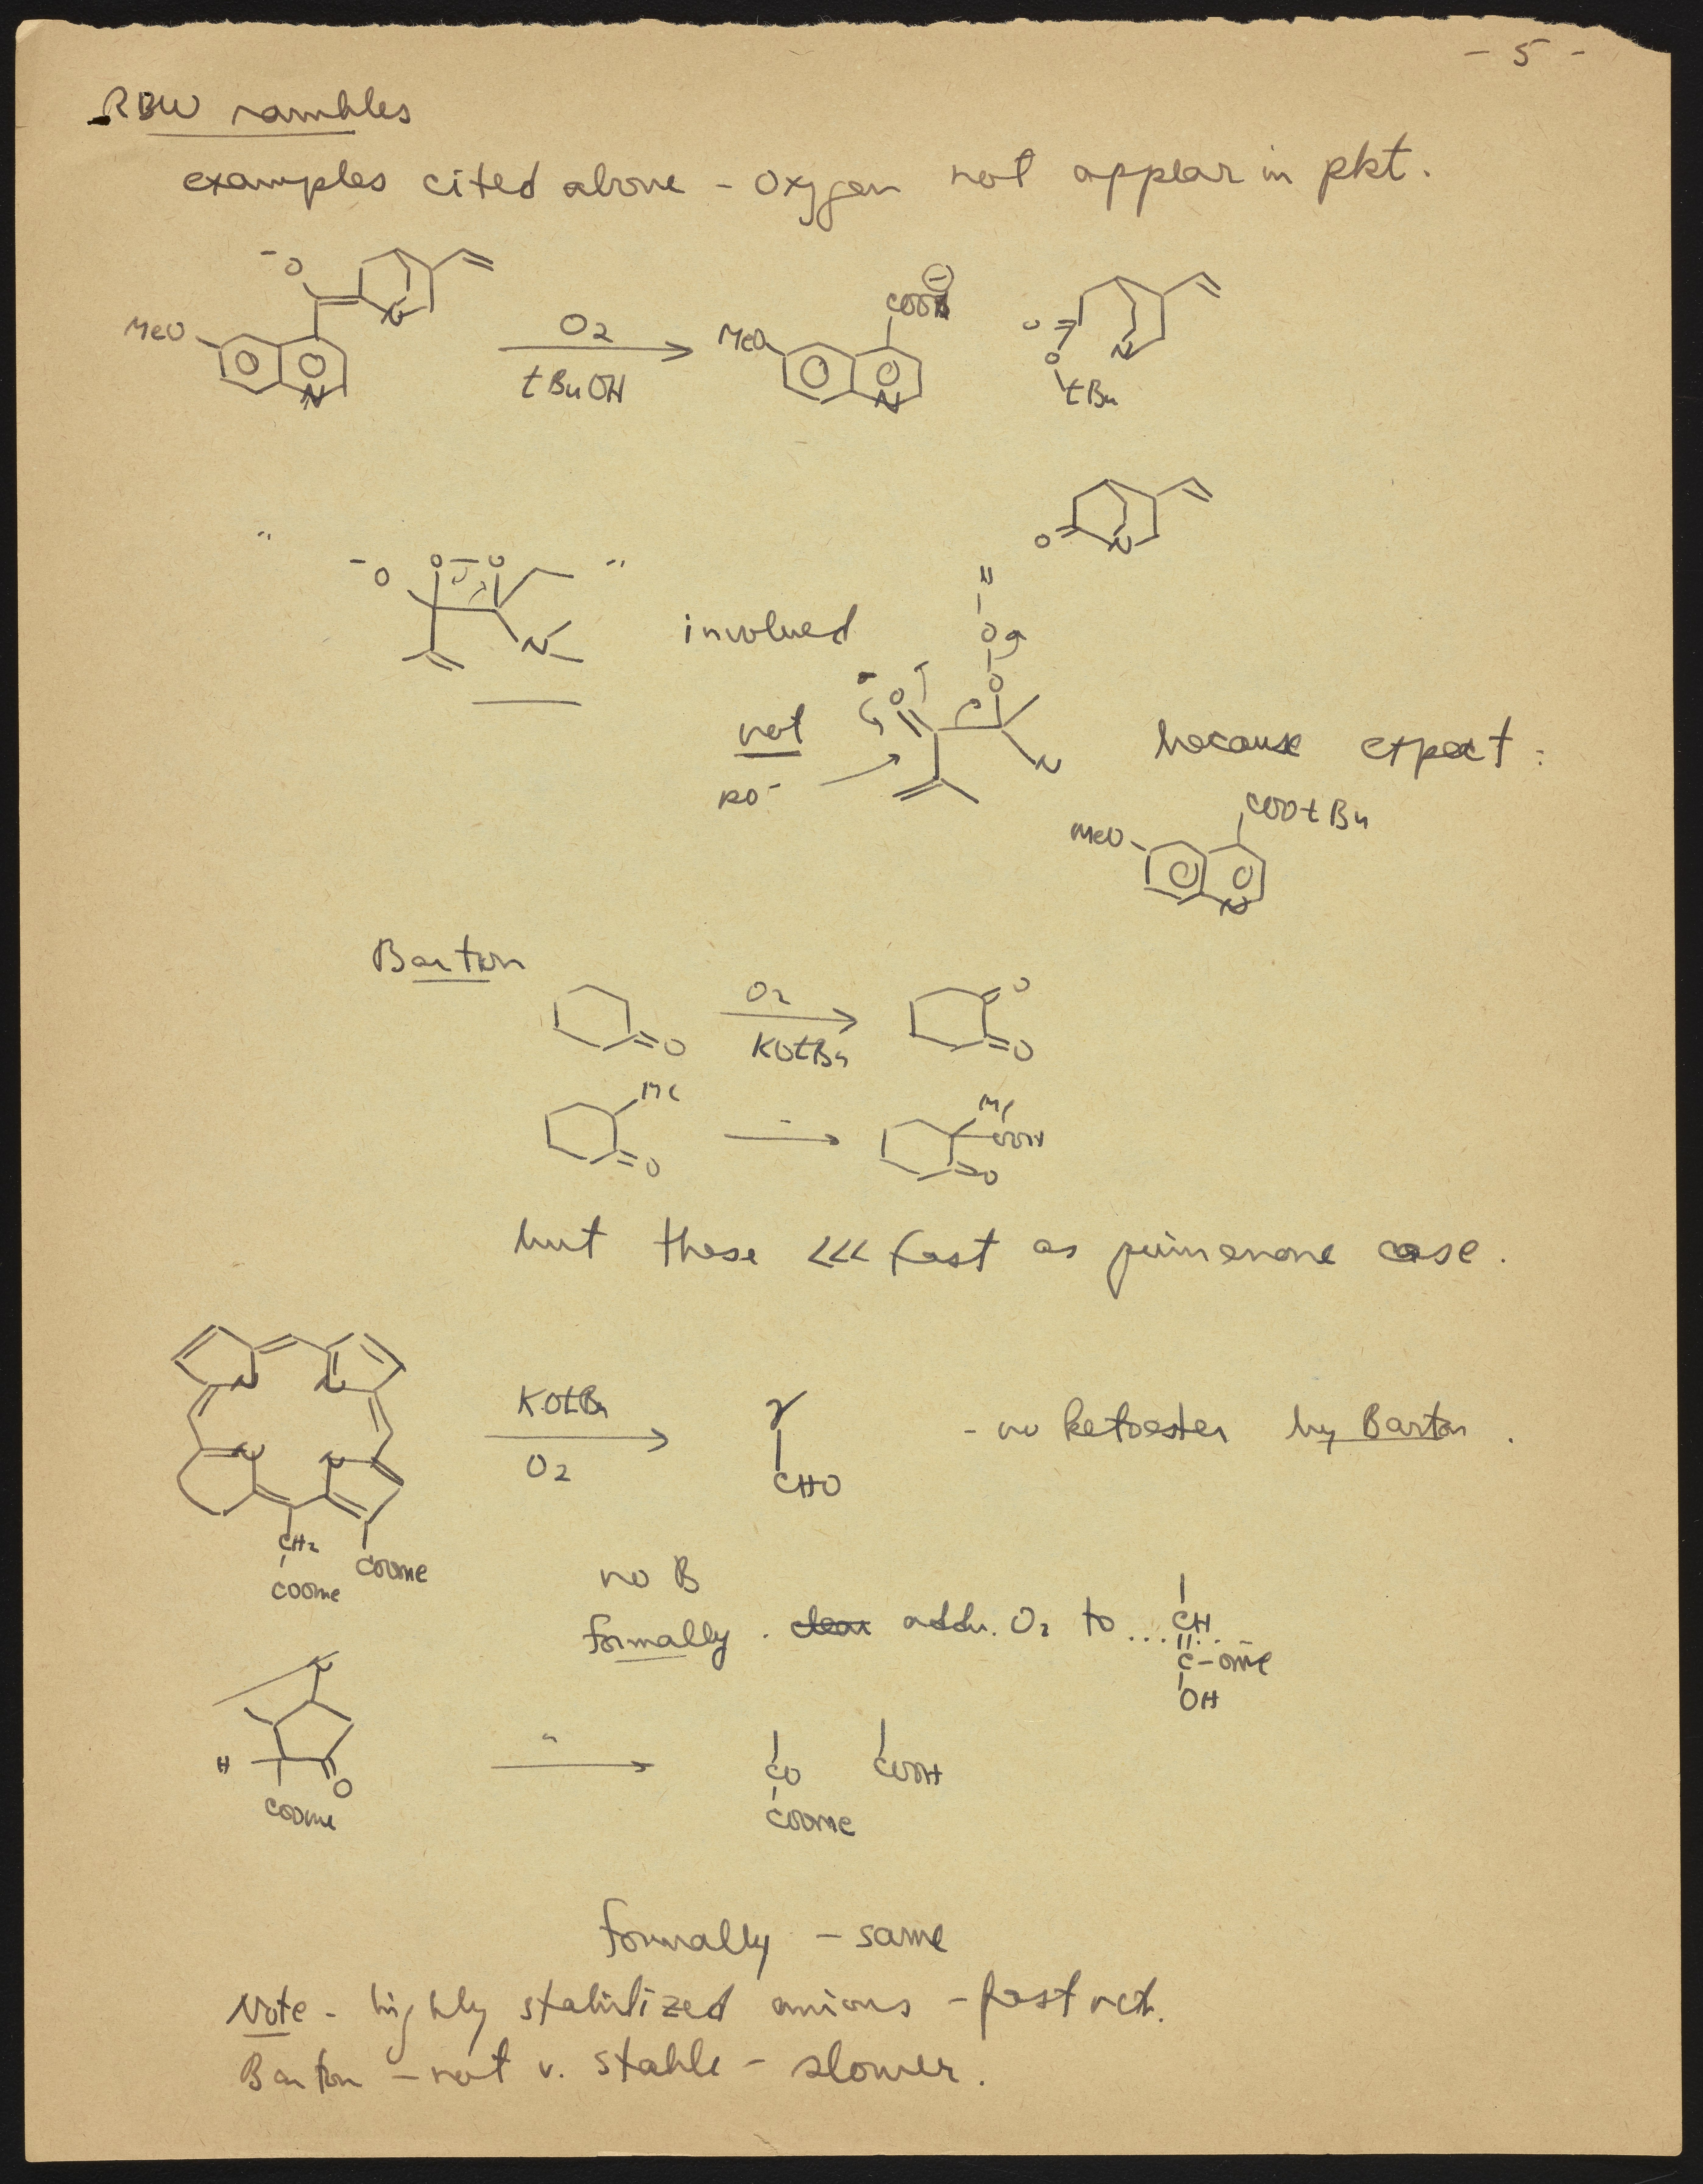 - 5 -
RBW rambles
examples cited above - oxygen not appear in pkt.
-O
N
MeO
N
O2
tBuOH
COO ⊖
MeO
N
O
O
tBu
N
O
N
"
-O
O-O
"
N
involved
O
O
O
not
RO-
N
because expect :
COOtBu
MeO
N
Barton
O
O2
KOtBu
O
O
Me
O
"
Me
OOH
O
but these <<< fast as quinenone case.
N N
N N
CH2
COOMe
COOMe
KOtBu
O2
CHO
- no ketoester by Barton .
no B
formally . addn. O2 to ...
CH
C-OMe
OH
N
H
O
COOMe
"
CO
COOMe
COOH
formally - same
Note - highly stabilized anions - fast rct.
Barton - not v. stable - slower.